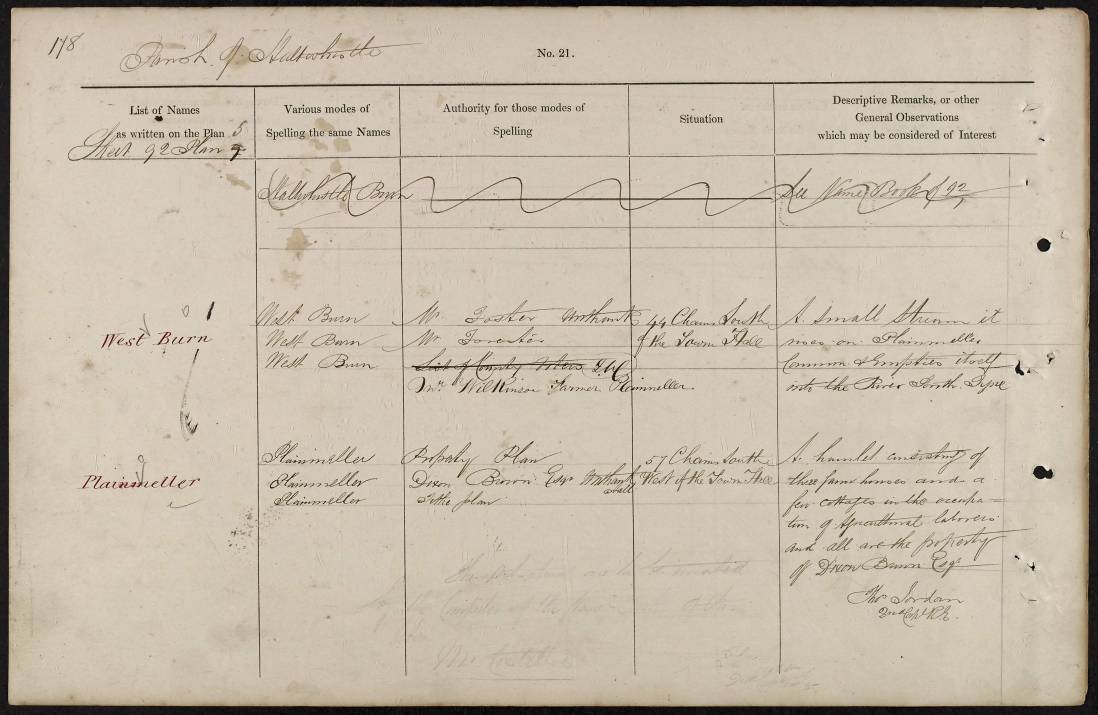 178
Parish of Haltwhistle
No. 21.
List of Names
as written on the Plan 5
Sheet 92 Plan 9
Various modes of
Spelling the same Names
Authority for those modes of
Spelling
Situation
Descriptive Remarks, or other
General Observations
which may be considered of Interest
Haltwhistle Burn
See Name Book of 92
West Burn
West Burn
West Burn
West Burn
Mr. Foster Unthank
Mr. Forester
List of County Voters
Mr. Wilkinson Farmer Plainmeller.
44 Chains South
of the Town Hall
A small Stream it
rises on Plainmeller
Common & Empties itself
into the River South Tyne
Plainmeller
Plainmeller
Plainmeller
Plainmeller
Property Plan
Dixon Brown Esqr. Unthank
Hall
Tithe plan
57 Chains South
West of the Town Hall
A hamlet consisting of
three farm houses and a
few cottages in the occupa-
tion of Agricultural laborers
and all are the property
of Dixon Brown Esqr.
Thos. Jordan
2nd Capt. R.E.